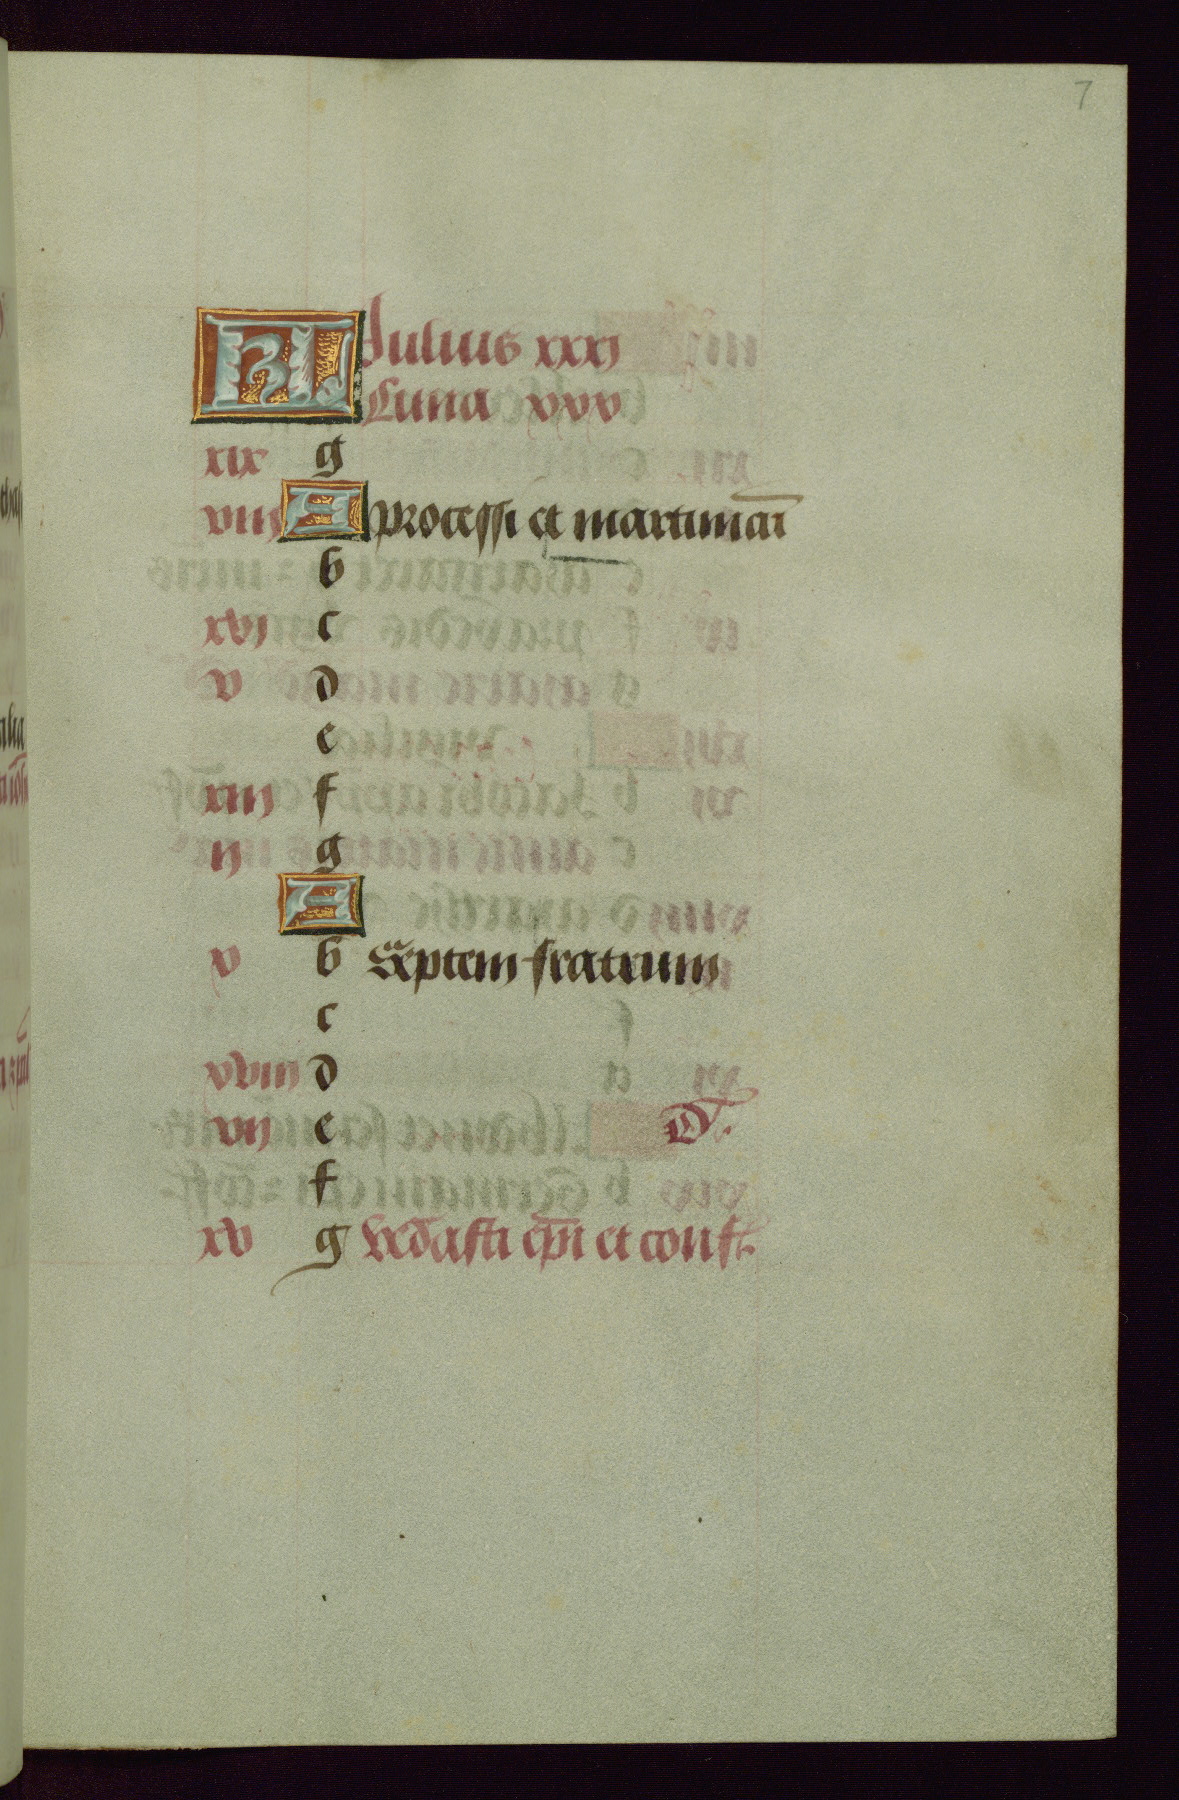 7
KL Julius xxxi
Luna xxx
xix g
viij A processi et martiniai
b
xvj c
v d
e
xiij f
ij g
A
v b Septem fratrum
c
xviij d
vij e D.
f
xv g vedasti epi et conf.